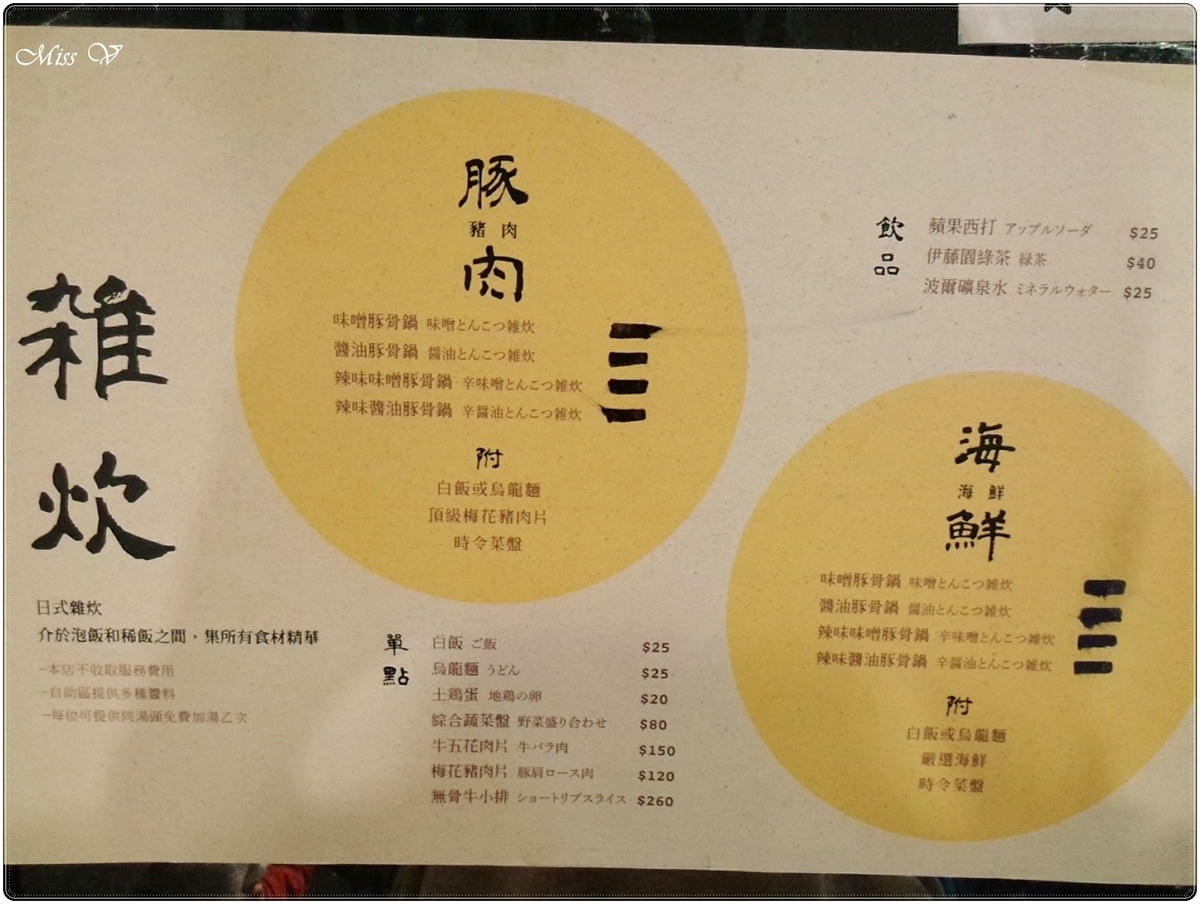 Miss V
雑炊
日式雜炊
介於泡飯和稀飯之間，集所有食材精華
-本店不收取服務費用
-自助區提供多種醬料
-每位可提供同湯頭免費加湯乙次
豚肉
豬肉
味噌豚骨鍋 味噌とんこつ雑炊
醬油豚骨鍋 醤油とんこつ雑炊
辣味味噌豚骨鍋 辛味噌とんこつ雑炊
辣味醬油豚骨鍋 辛醤油とんこつ雑炊
附
白飯或烏龍麵
頂級梅花豬肉片
時令菜盤
單點
白飯 ご飯 $25
烏龍麵 うどん $25
土鶏蛋 地鶏の卵 $20
綜合蔬菜盤 野菜盛り合わせ $80
牛五花肉片 牛バラ肉 $150
梅花豬肉片 豚肩ロース肉 $120
無骨牛小排 ショートリブスライス $260
飲品
蘋果西打 アップルソーダ $25
伊藤園綠茶 緑茶 $40
波爾礦泉水 ミネラルウォター $25
海鮮
海鮮
味噌豚骨鍋 味噌とんこつ雑炊
醬油豚骨鍋 醤油とんこつ雑炊
辣味味噌豚骨鍋 辛味噌とんこつ雑炊
辣味醬油豚骨鍋 辛醤油とんこつ雑炊
附
白飯或烏龍麵
嚴選海鮮
時令菜盤